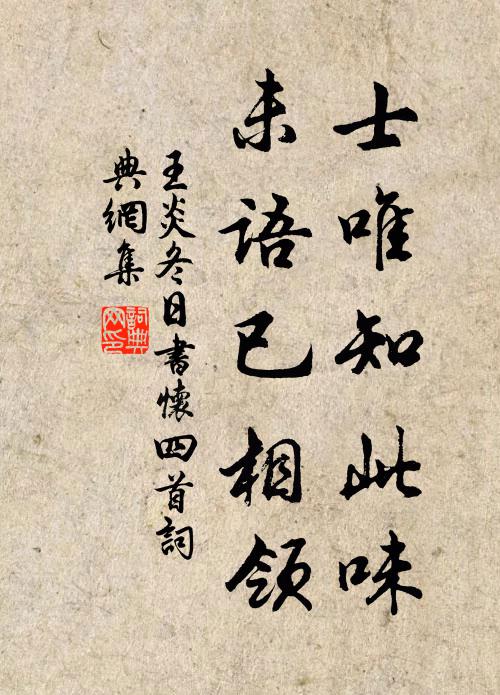 士唯知此味
未語已相領
王炎冬日書懷四首詞
典網集
詞典網印